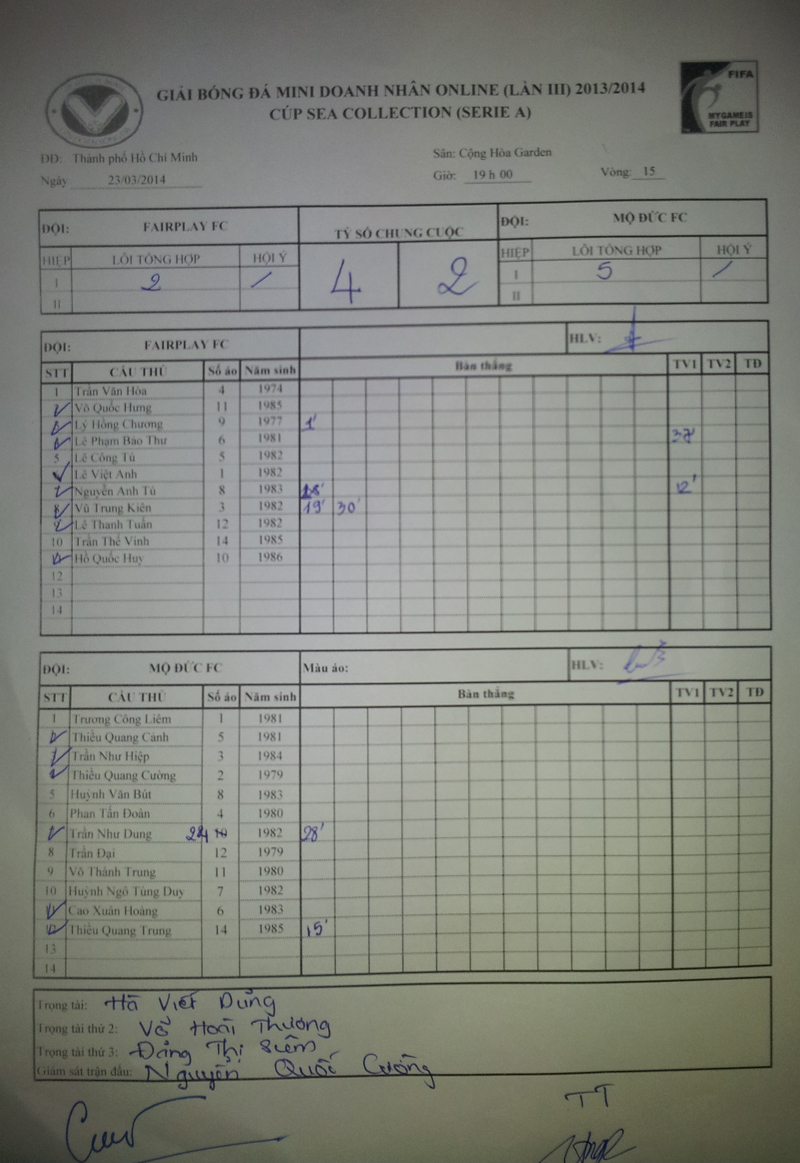 GIẢI BÓNG ĐÁ MINI DOANH NHÂN ONLINE (LẦN III) 2013/2014
CÚP SEA COLLECTION (SERIE A)
FIFA
MY GAME IS
FAIR PLAY
ĐĐ: Thành phố Hồ Chí Minh
Sân: Cộng Hòa Garden
Ngày 23/03/2014
Giờ: 19 h 00
Vòng: 15
ĐỘI: FAIRPLAY FC
TỶ SỐ CHUNG CUỘC
ĐỘI: MỘ ĐỨC FC
HIỆP LỖI TỔNG HỢP HỘI Ý
HIỆP LỖI TỔNG HỢP HỘI Ý
I 2 / 4 2 I 5 /
II II
ĐỘI: FAIRPLAY FC HLV:
STT CẦU THỦ Số áo Năm sinh Bàn thắng TV1 TV2 TĐ
1 Trần Văn Hòa 4 1974
Võ Quốc Hưng 11 1985
Lý Hồng Chương 9 1977 1'
Lê Phạm Bảo Thư 6 1981 37'
5 Lê Công Tú 5 1982
Lê Việt Anh 1 1982
Nguyễn Anh Tú 8 1983 18' 12'
Vũ Trung Kiên 3 1982 19' 30'
Lê Thanh Tuấn 12 1982
10 Trần Thế Vinh 14 1985
Hồ Quốc Huy 10 1986
12
13
14
ĐỘI: MỘ ĐỨC FC Màu áo: HLV:
STT CẦU THỦ Số áo Năm sinh Bàn thắng TV1 TV2 TĐ
1 Trương Công Liêm 1 1981
Thiều Quang Cảnh 5 1981
Trần Như Hiệp 3 1984
Thiều Quang Cường 2 1979
5 Huỳnh Văn Bút 8 1983
6 Phan Tấn Đoàn 4 1980
Trần Như Dung 24 10 1982 28'
8 Trần Đại 12 1979
9 Võ Thành Trung 11 1980
10 Huỳnh Ngô Tùng Duy 7 1982
Cao Xuân Hoàng 6 1983
Thiều Quang Trung 14 1985 15'
13
14
Trọng tài: Hà Viết Dũng
Trọng tài thứ 2: Võ Hoài Thương
Trọng tài thứ 3: Đặng Thị Siêm
Giám sát trận đấu: Nguyễn Quốc Cường
TT